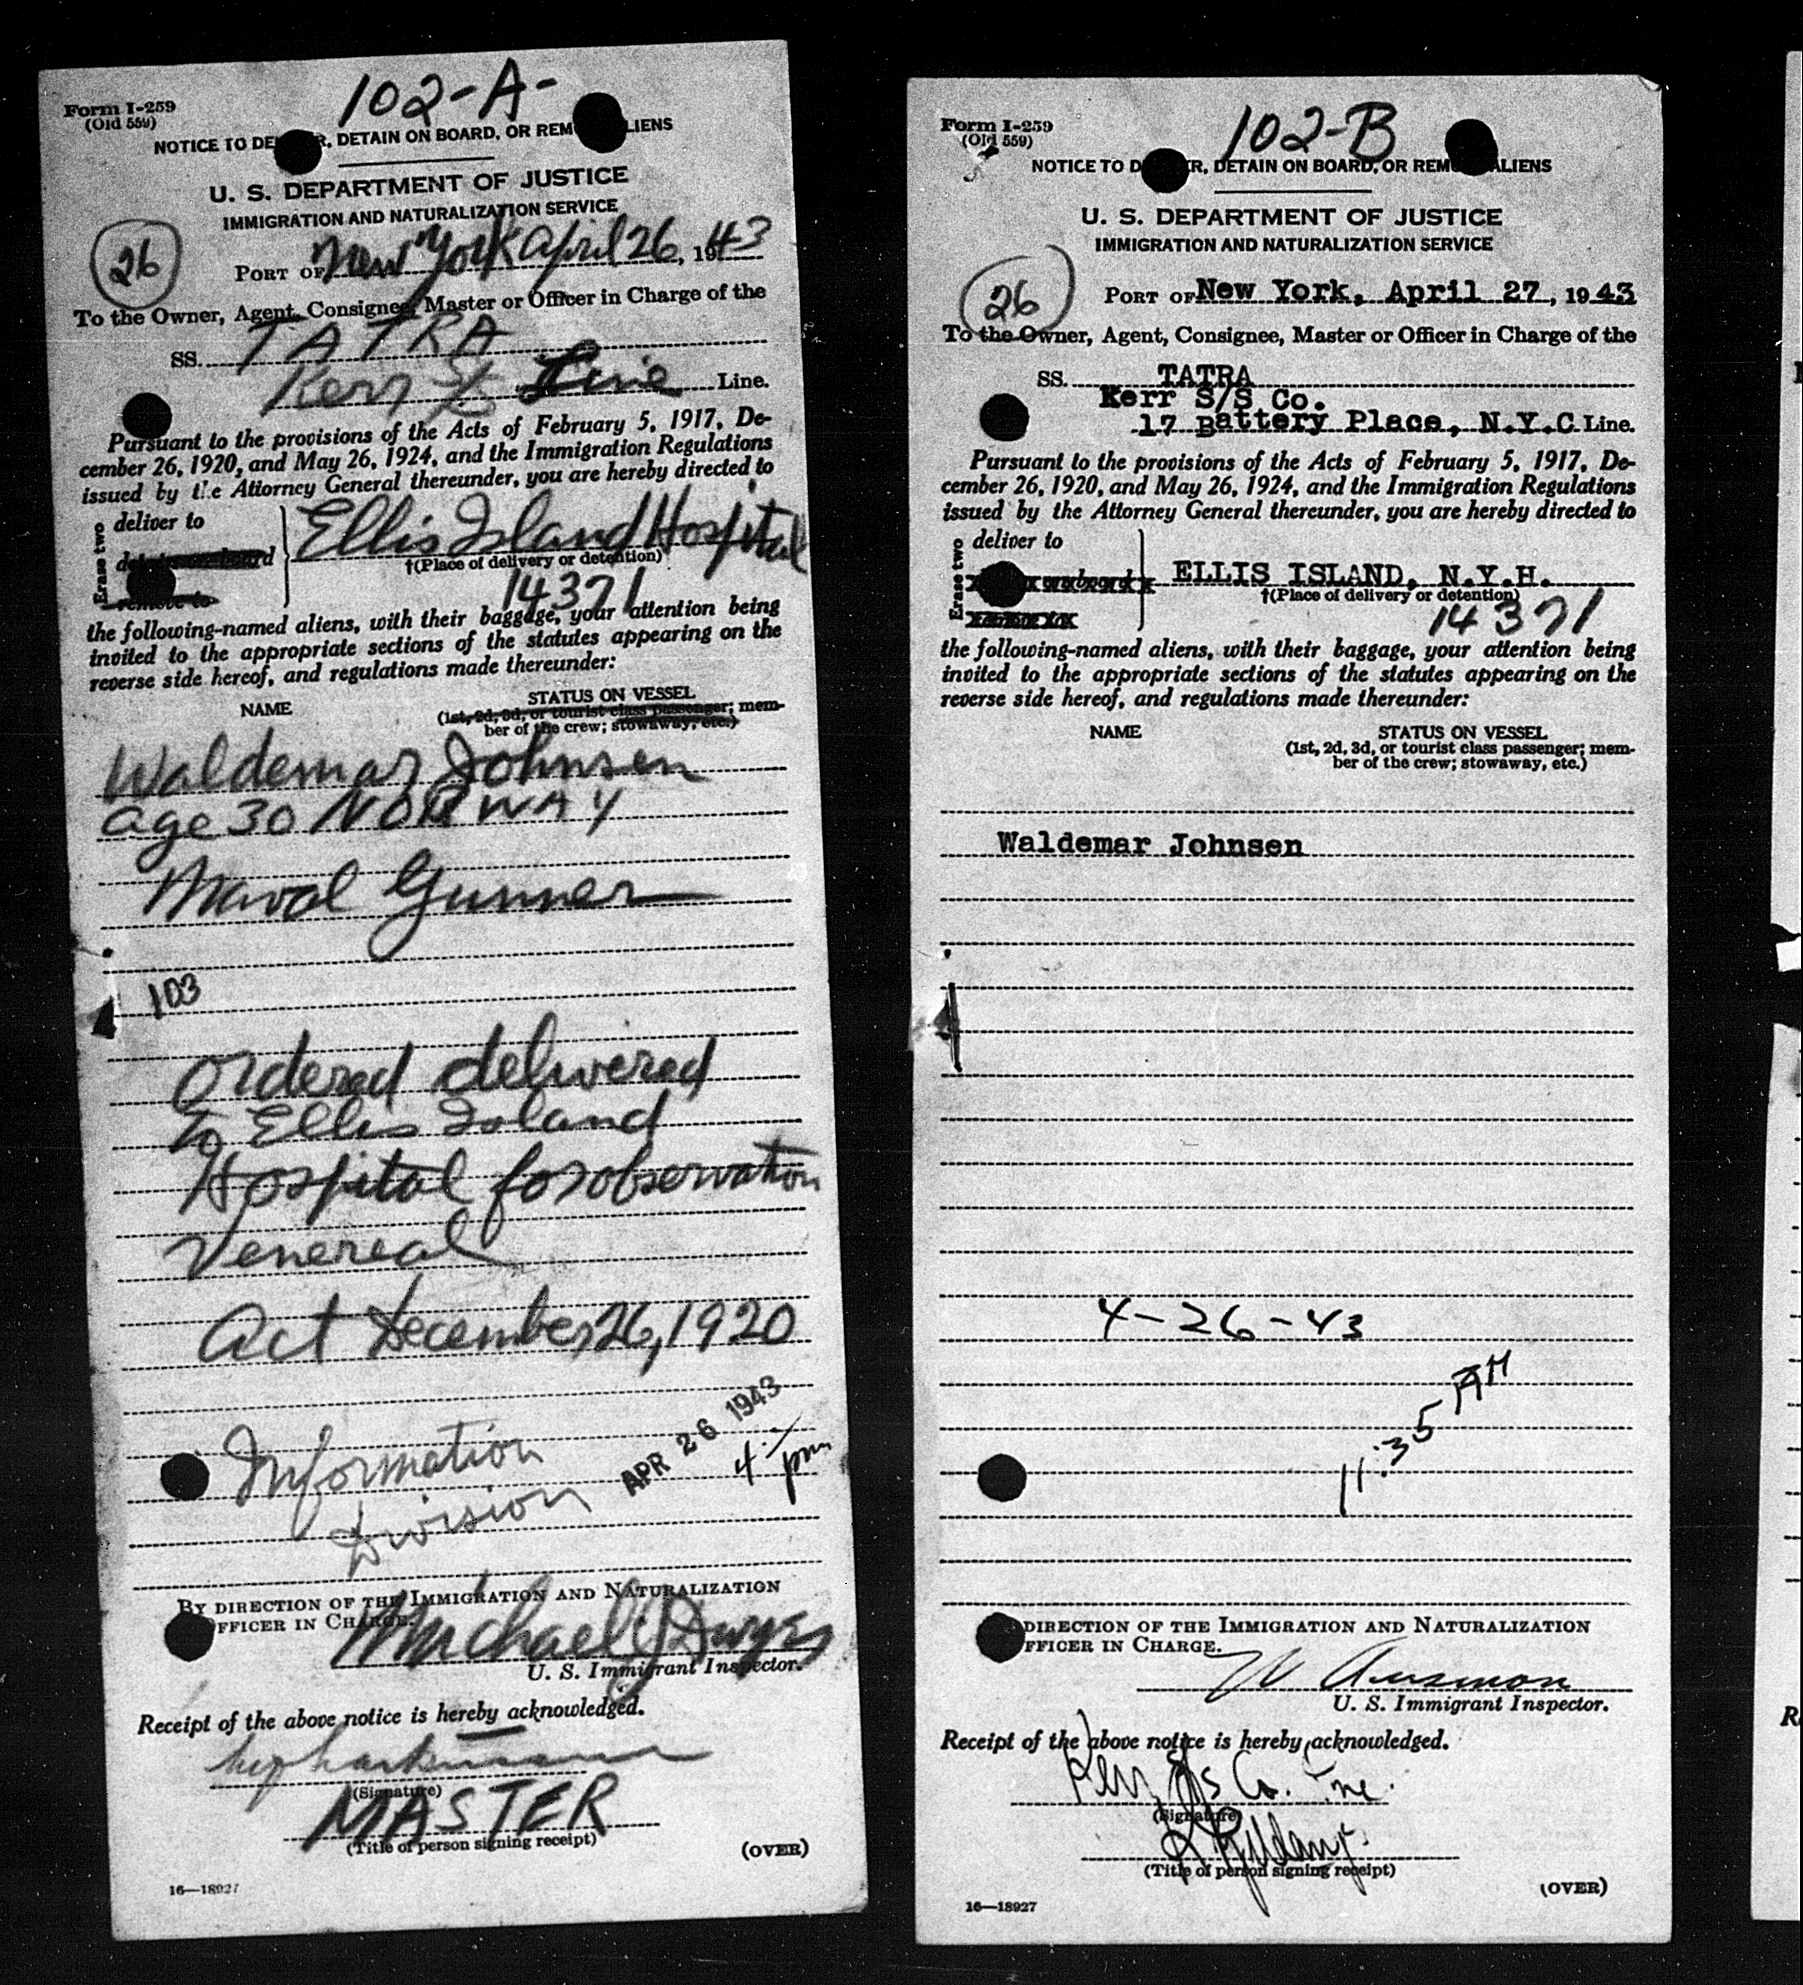 102-A-
Form I-259
(Old 559)
NOTICE TO DE R, DETAIN ON BOARD, OR REM LIENS
U. S. DEPARTMENT OF JUSTICE
IMMIGRATION AND NATURALIZATION SERVICE
26
PORT OF New York April 26, 1943
To the Owner, Agent, Consignee, Master or Officer in Charge of the
SS. TATRA
Kerr SS Line Line.
Pursuant to the provisions of the Acts of February 5, 1917, De-
cember 26, 1920, and May 26, 1924, and the Immigration Regulations
issued by the Attorney General thereunder, you are hereby directed to
Erase two
deliver to
Ellis Island Hospital
†(Place of delivery or detention)
remove to
14371
the following-named aliens, with their baggage, your attention being
invited to the appropriate sections of the statutes appearing on the
reverse side hereof, and regulations made thereunder:
NAME
STATUS ON VESSEL
(1st, 2d, 3d, or tourist class passenger; mem-
ber of the crew; stowaway, etc.)
Waldemar Johnsen
age 30 NORWAY
Naval Gunner
103
Ordered delivered
to Ellis Island
Hospital for observation
Venereal
Act December 26, 1920
Information
Division
APR 26 1943
4 pm
BY DIRECTION OF THE IMMIGRATION AND NATURALIZATION
FFICER IN CHARGE.
Michael J Dwyer
U. S. Immigrant Inspector.
Receipt of the above notice is hereby acknowledged.
(Signature)
MASTER
(Title of person signing receipt)
(OVER)
16—18927
102-B
Form I-259
(Old 559)
NOTICE TO D R, DETAIN ON BOARD, OR REM ALIENS
U. S. DEPARTMENT OF JUSTICE
IMMIGRATION AND NATURALIZATION SERVICE
26
PORT OF New York, April 27, 1943
To the Owner, Agent, Consignee, Master or Officer in Charge of the
SS. TATRA
Kerr S/S Co.
17 Battery Place, N.Y.C. Line.
Pursuant to the provisions of the Acts of February 5, 1917, De-
cember 26, 1920, and May 26, 1924, and the Immigration Regulations
issued by the Attorney General thereunder, you are hereby directed to
Erase two
deliver to
ELLIS ISLAND, N.Y.H.
†(Place of delivery or detention)
14371
the following-named aliens, with their baggage, your attention being
invited to the appropriate sections of the statutes appearing on the
reverse side hereof, and regulations made thereunder:
NAME
STATUS ON VESSEL
(1st, 2d, 3d, or tourist class passenger; mem-
ber of the crew; stowaway, etc.)
Waldemar Johnsen
4-26-43
11:35 AM
DIRECTION OF THE IMMIGRATION AND NATURALIZATION
FFICER IN CHARGE.
U. S. Immigrant Inspector.
Receipt of the above notice is hereby acknowledged.
Kerr S/S Co. Inc.
(Signature)
(Title of person signing receipt)
(OVER)
16—18927